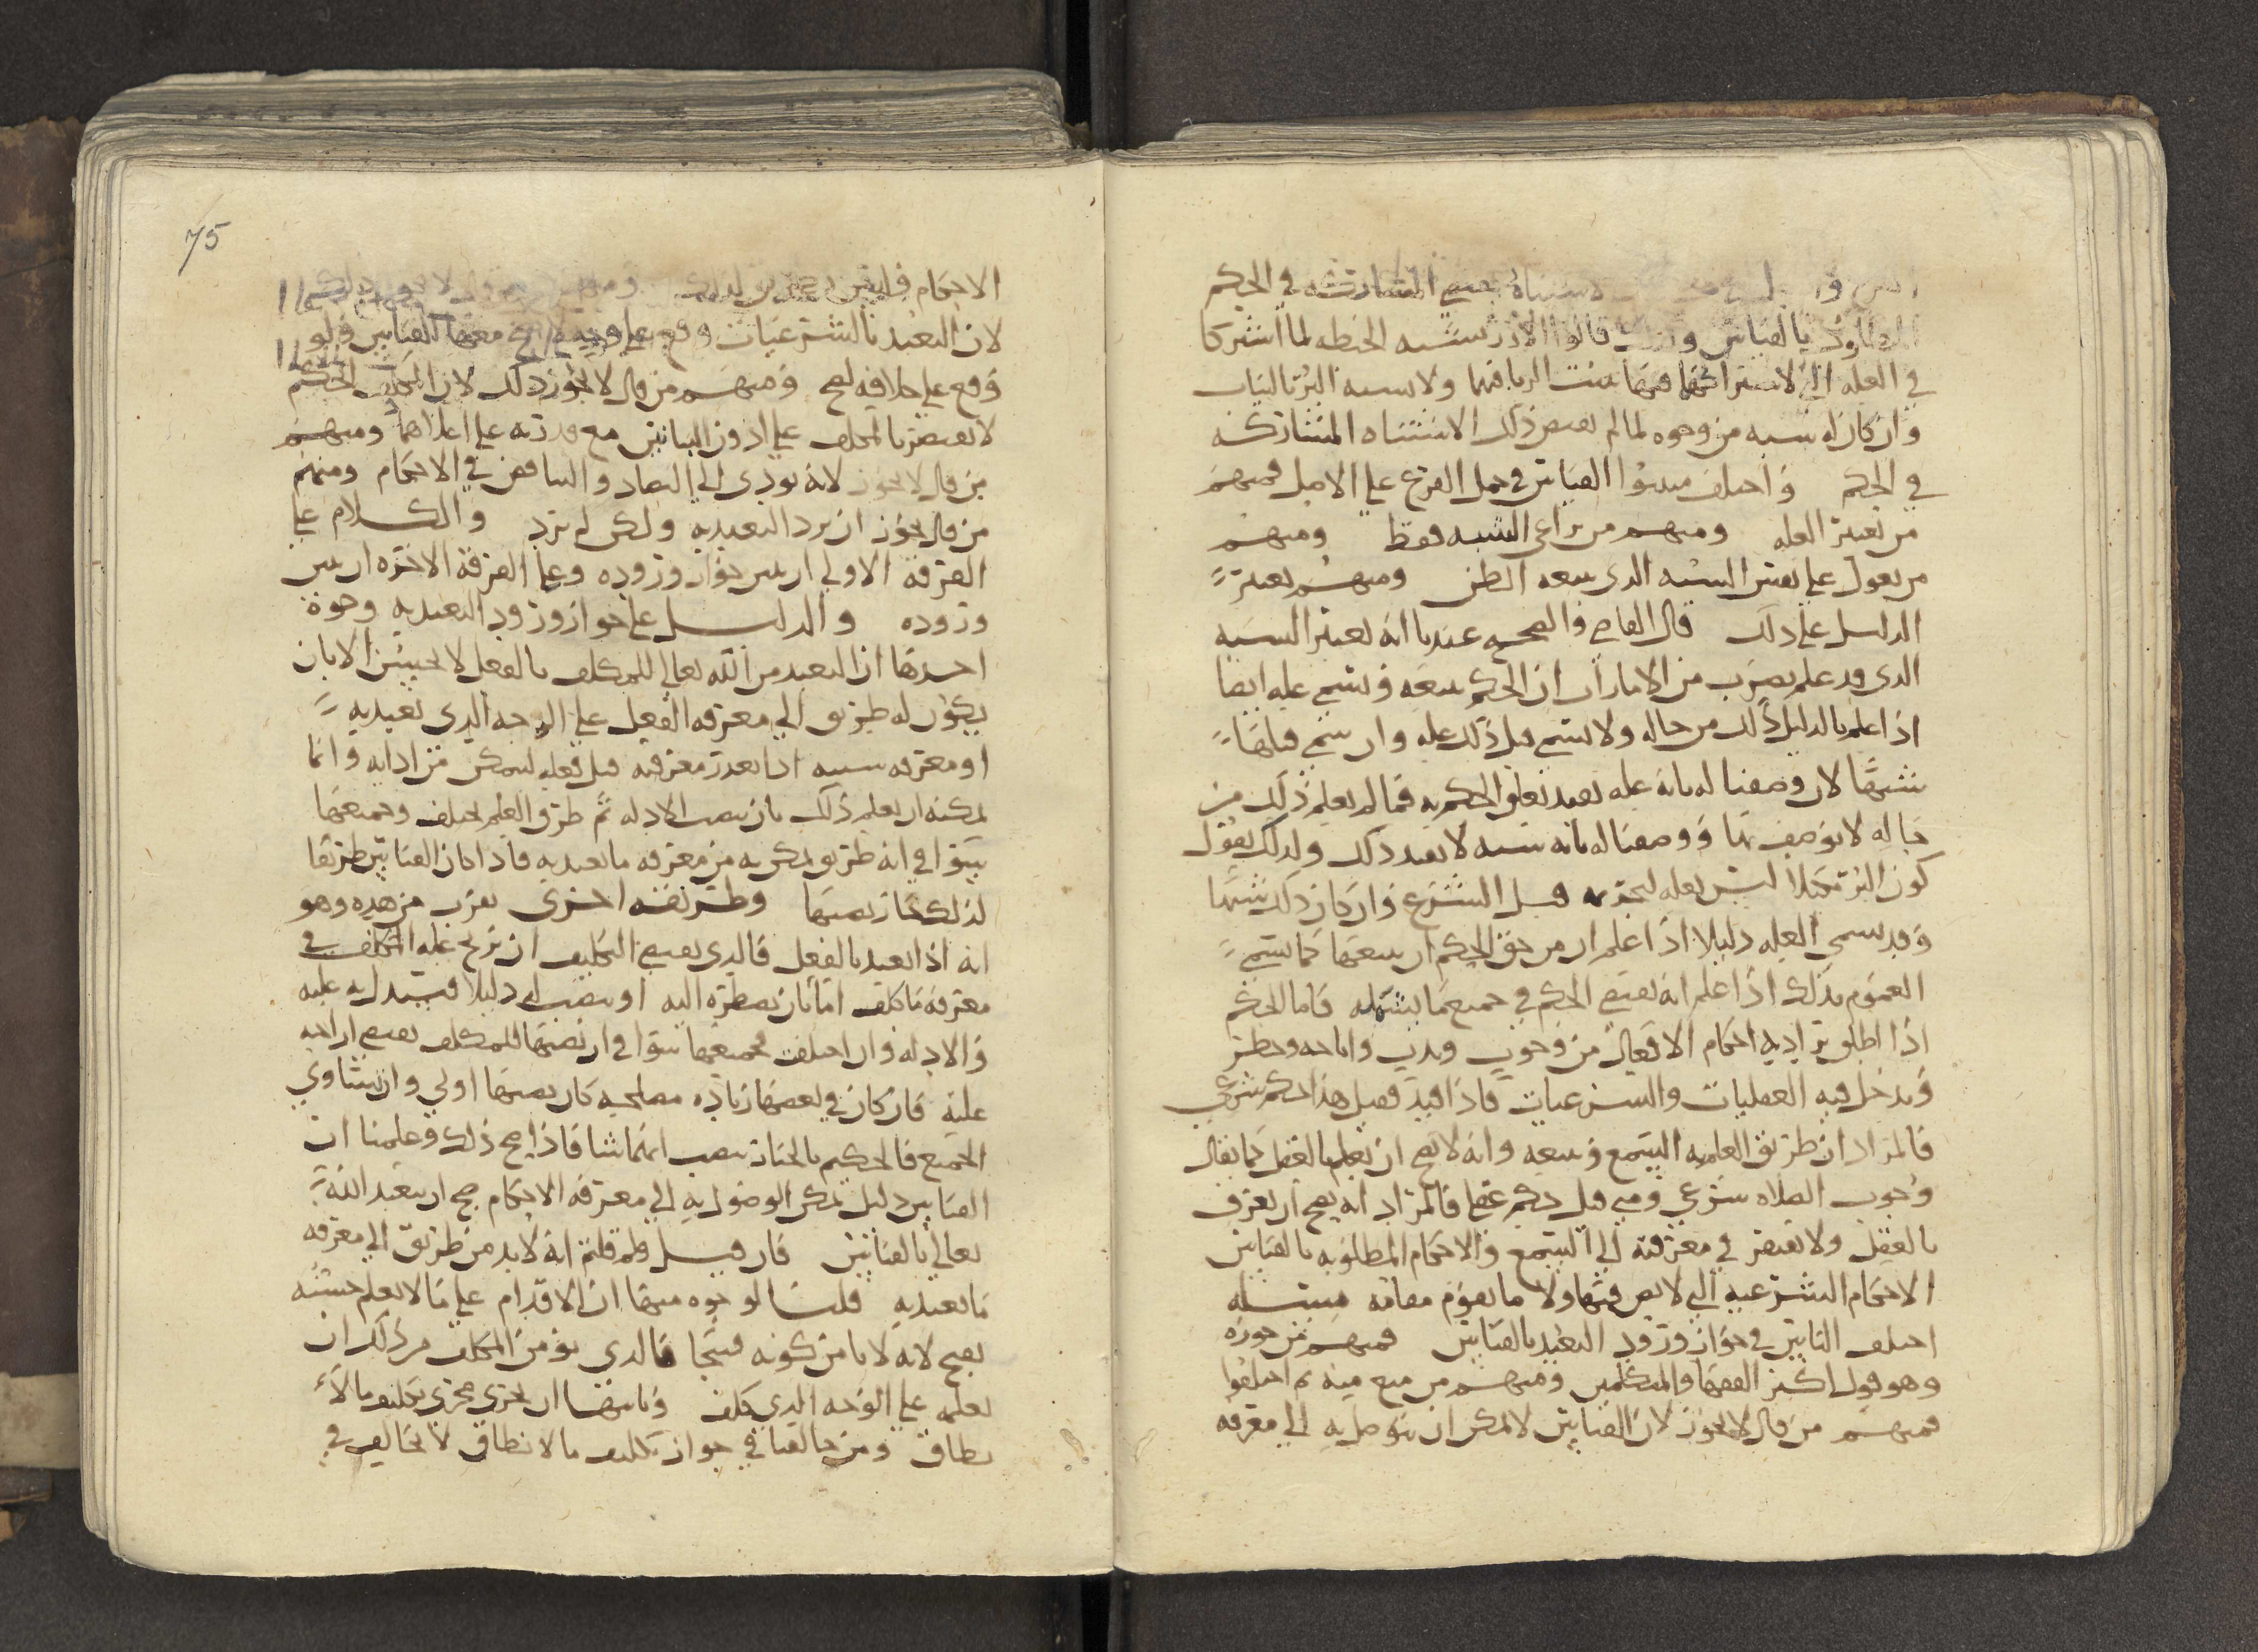 الاشتباه يقتضي المشاركة في الحكم
بالقياس قالوا الارز يشبه الحنطه لما اشتركا
في العله التي لاشتراكهما فيها ثبت الربا فيهما ولا يشبه البر بالثياب
وان كان له شبه من وجوه لما لم يقتض ذلك الاشتباه المشاركه
في الحكم واختلف مثبتوا القياس في حمل الفرع على الاصل فمنهم
من يعتبر العله ومنهم من يراعي الشبه فقط ومنهم
من يعول على يعتبر الشبه الذي يتبعه الظن ومنهم يعتبر
الدليل على ذلك قال القاضي والصحيح عندنا انه يعتبر الشبه
الذي قد علم بضرب من الامارات ان الحكم يتبعه ويسمى عله ايضا
اذا علم بالدليل ذلك من حاله ولا يسمى قبل ذلك عله وان سمي قبلها
شبها لان وصفنا له بانه عله يفيد تعلق الحكم به فما لم يعلم ذلك من
حاله لا يوصف بها ووصفنا له بانه شبه لا يفيد ذلك ولذلك نقول
كون البر مكيلا ليس بعله لتحريمه قبل الشرع وان كان ذلك شبها
وقد يسمى العله دليلا اذا علم ان من حق الحكم ان يتبعها كما يسمى
العموم بذلك اذا علم انه يقتضي الحكم في جميع ما يشمله فاما الحكم
اذا اطلق يراد به احكام الافعال من وجوب وندب واباحه وحظر
ويدخل فيه العقليات والشرعيات فاذا قيد فقيل هذا حكم شرعي
فالمراد ان طريق العلم به السمع وتبعه وانه لا يصح ان يعلم بالعقل كما يقال
وجوب الصلاه شرعي ومتى قيل حكم عقلي فالمراد انه يصح ان يعرف
بالعقل ولا يفتقر في معرفته الى السمع والاحكام المطلوبه بالقياس
الاحكام الشرعيه التي لا نص فيها ولا ما يقوم مقامه مسئله
اختلف الناس في جواز ورود التعبد بالقياس فمنهم من جوزه
وهو قول اكثر الفقها والمتكلمين ومنهم من منع منه ثم اختلفوا
فمنهم من قال لا يجوز لان القياس لا يمكن ان يتوصل به الى معرفه
75
الاحكام فليس بطريق لذلك ومنهم من قال لا يجوز ذلك
لان التعبد بالشرعيات وقع على وجه لا يصح معها القياس ولو
وقع على خلافه لصح ومنهم من قال لا يجوز ذلك لان الحكيم
لا يقتصر بالمكلف على ادون البيانين مع قدرته على اعلاهما ومنهم
من قال لا يجوز لانه يودي الى التضاد والتناقض في الاحكام ومنهم
من قال يجوز ان يرد التعبد به ولكن لم يرد والكلام على
الفرقة الاولى ان نبين جواز وروده وعلى الفرقة الاخره ان نبين
وروده والدليل على جواز ورود التعبد به وجوه
احدها ان التعبد من الله تعالى للمكلف بالفعل لا يحسن الا بان
يكون له طريق الى معرفه الفعل على الوجه الذي تعبد به
او معرفه سببه اذا تعذر معرفته قبل فعله ليتمكن من ادايه وانما
يمكنه ان يعلم ذلك بان ينصب الادله ثم طرق العلم تختلف وجميعها
سوا في انه طريق يمكن به من معرفه ما تعبد به فاذا كان القياس طريقا
لذلك جاز نصبها وطريقه اخرى تقرب من هذه وهو
انه اذا تعبد بالفعل فالذي يقتضي التكليف ان تزاح عله المكلف في
معرفة ما كلف اما بان يضطره اليه او ينصب له دليلا فيستدل به عليه
والادله وان اختلفت فجميعها سوا في ان نصبها للمكلف يقتضي ازاحه
عليه فان كان في بعضها زيادة مصلحه كان نصبها اولى وان تساوى
الجميع فالحكيم بالخيار ينصب ايها شا فاذا صح ذلك وعلمنا ان
القياس دليل يمكن الوصول به الى معرفه الاحكام صح ان يتعبد الله
تعالى بالقياس فان قيل ولم قلتم انه لا بد من طريق الى معرفه
ما تعبد به قلنا لوجوه منها ان الاقدام على ما لا يعلم حسنه
يقبح لانه لا يامن كونه قبيحا فالذي يومن المكلف من ذلك ان
يعلمه على الوجه الذي كلف وثانيها ان يجري مجرى تكليف ما لا
يطاق ومن خالفنا في جواز تكليف ما لا يطاق لا يخالف في